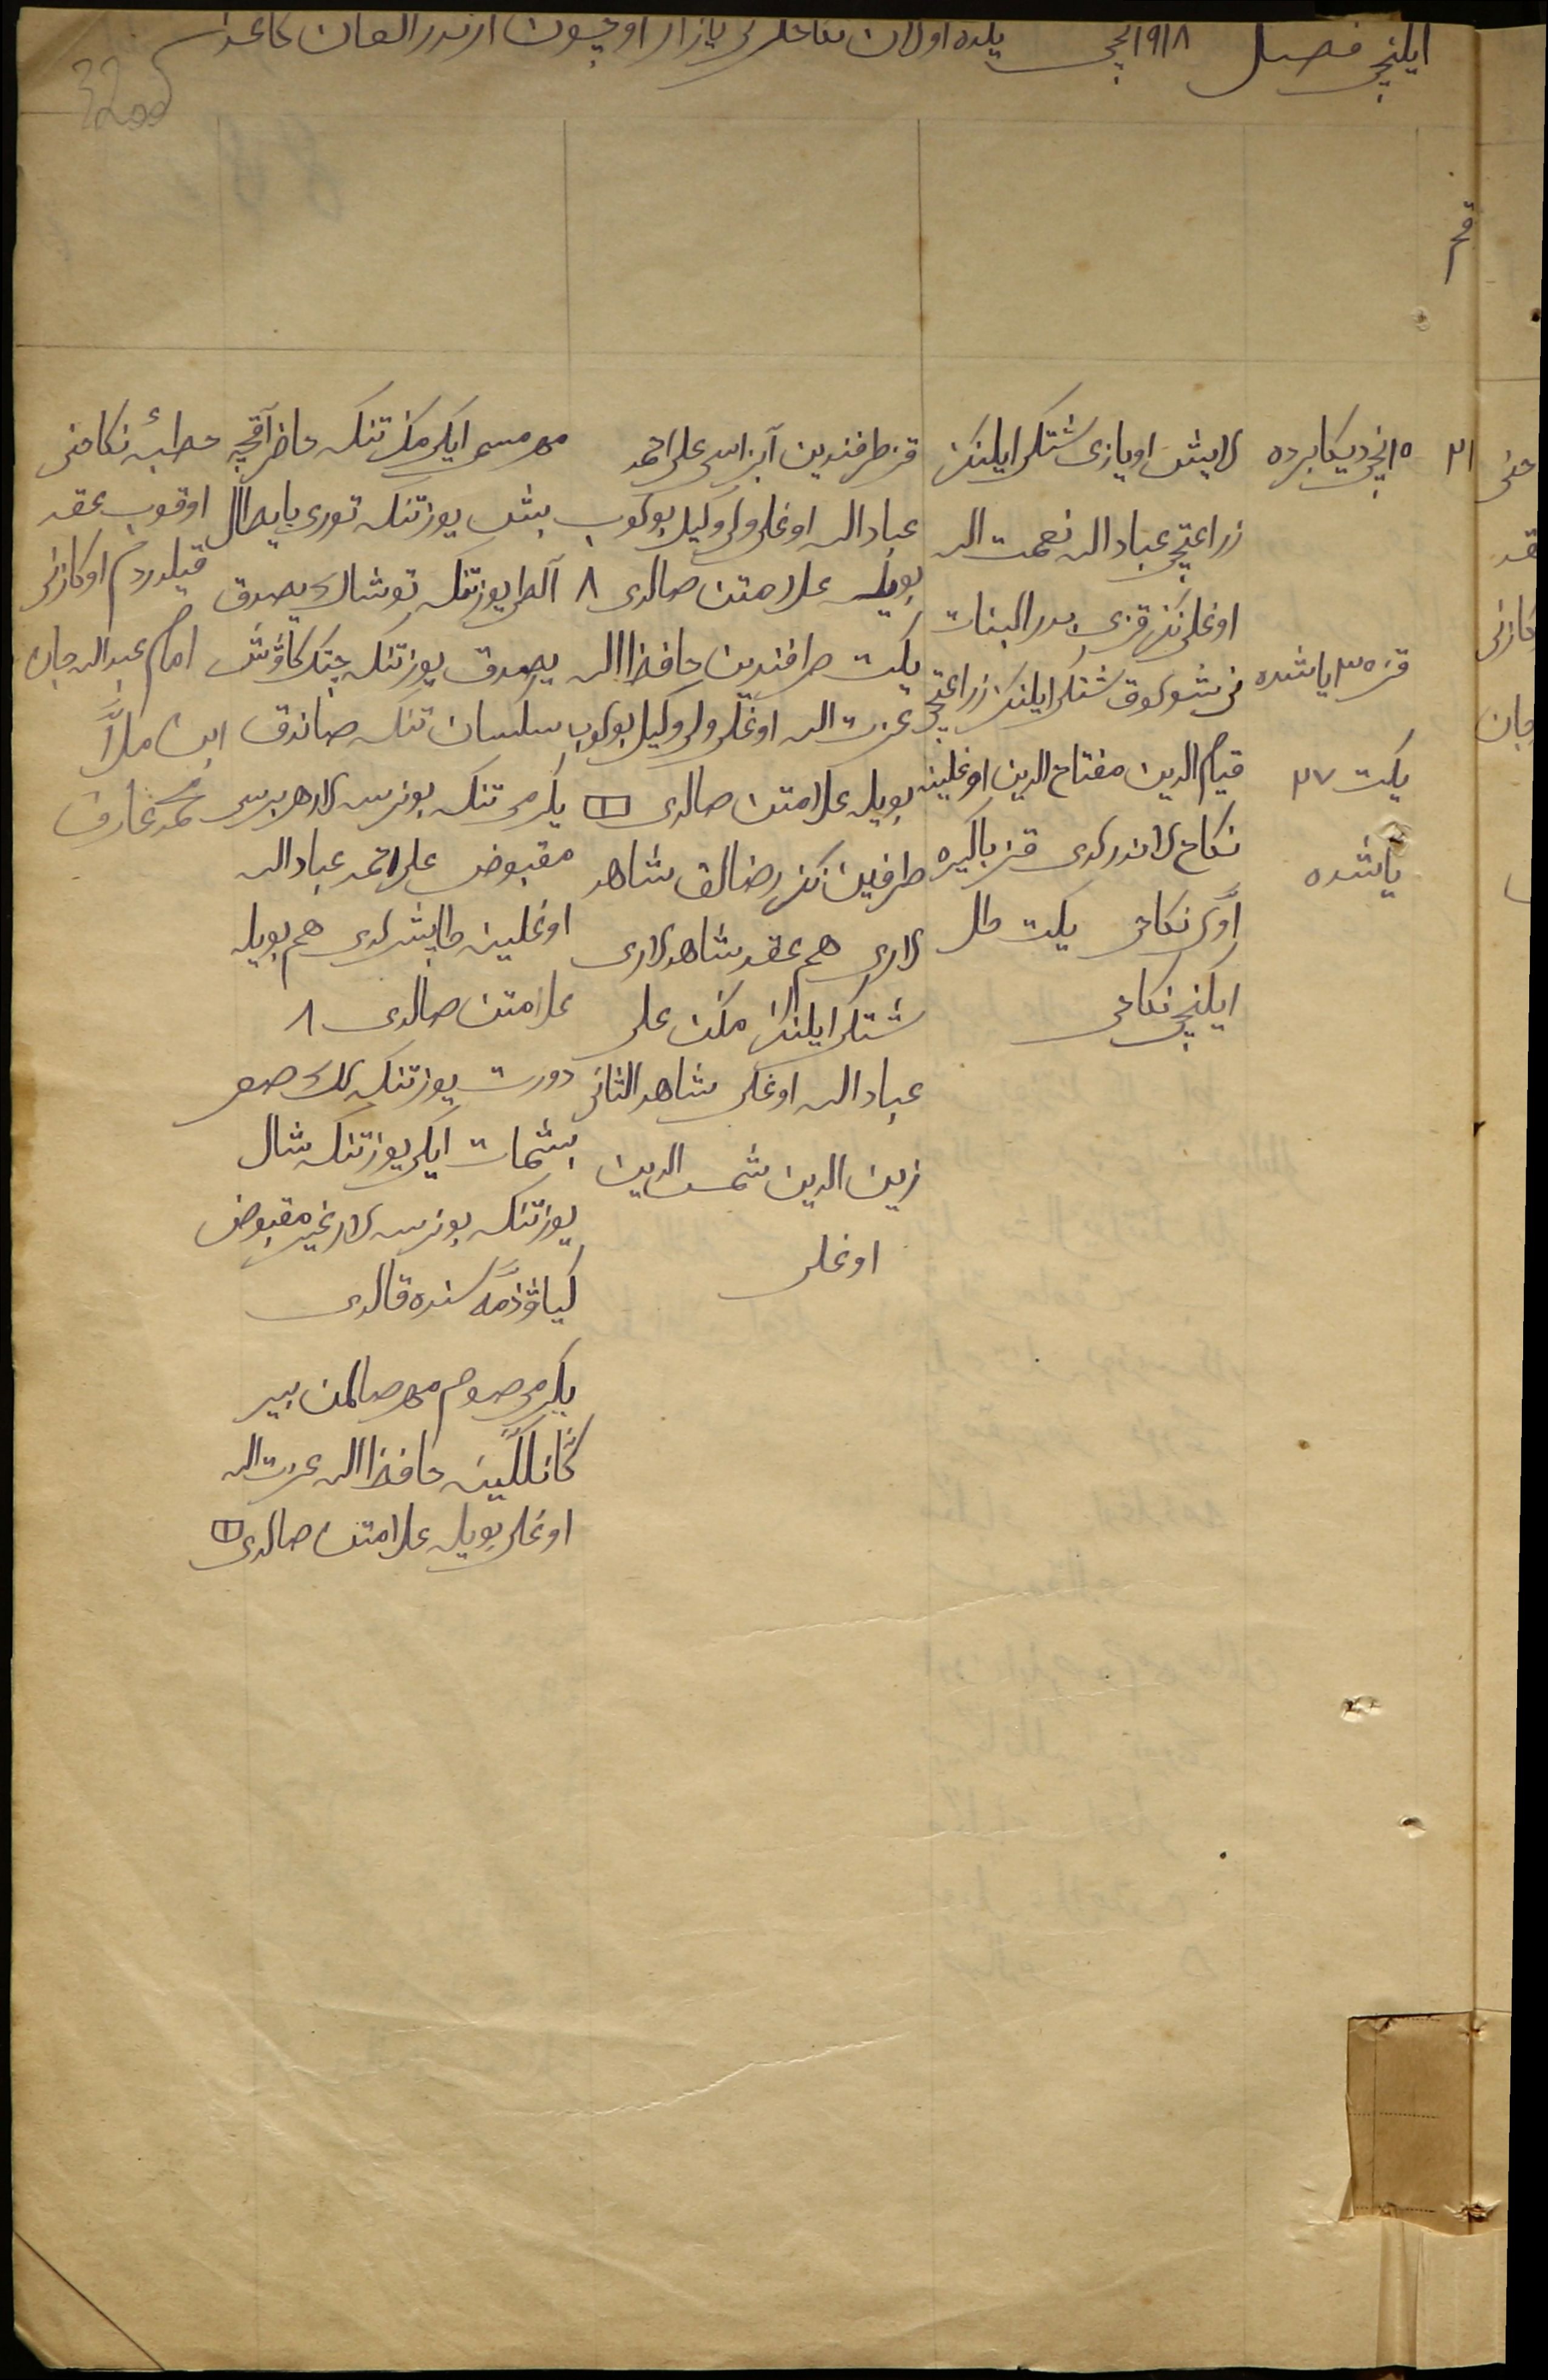 ایلنچی فصل ۱۹۱۸ نچی یلده اولان نکاحلرنی یازار اوچون
رقم
۲۱
۱۵ نچی دیکابرده
قز ۲۵ یاشنده
یکت ۲۷
یاشنده
لایش اویازی شتکی ایلننک
زراعتچی عبادالله نعمت الله
اوغلی ننک قزی بدرالبنات
نی شولوق شتکی ایلننک زراعتچی
قیام الدین مفتاح الدین اوغلینه
نکاح لاندرلدی قز باکیره
اوّلی نکاحی یکت طل
ایلنچی نکاحی
قز طرفندین آبزاسی علی احمد
عبادالله اوغلی ولی وکیل بولوب
بویله علامتن صالدی ۸
یکت طرافندین حافظ الله
عزت الله اوغلی ولی وکیل بولوب
بویله علامتن صالدی
طرفین ننک رضالق شاهد
لاری هم عقد شاهدلاری
شتکی ایلننک ملک علی
عبادالله اوغلی شاهد الثانی
زین الدین شمس الدین
اوغلی
مهر مسمی ایکی منک تنکه حاضر آقچه
بش یوز تنکه توری بایطال
آلطی یوز تنکه توشاک یصدق
یصدق یوز تنکه چتک کاؤش
سکسان تنکه صاندق
یکرمی تنکه بو نرسه لار هر برسی
مقبوض علی احمد عبادالله
اوغلینه طابشرلدی هم بویله
علامتن صالدی ۸
دورت یوز تنکه لک
بشمات ایکی یوز تنکه شال
یوز تنکه بو نرسه لار غیر مقبوض
کیاؤ ذمه سنده قالدی
یکرمی صوم مهر صالمن بیر
کانلکینه حافظ الله عزت الله
اوغلی بویله علامتن صالدی
خطبهٔ نکاحنی
اوقوب عقد
قیلدردم اوکازنی
امام عبدالله جان
ابن ملّا
محمد عارف